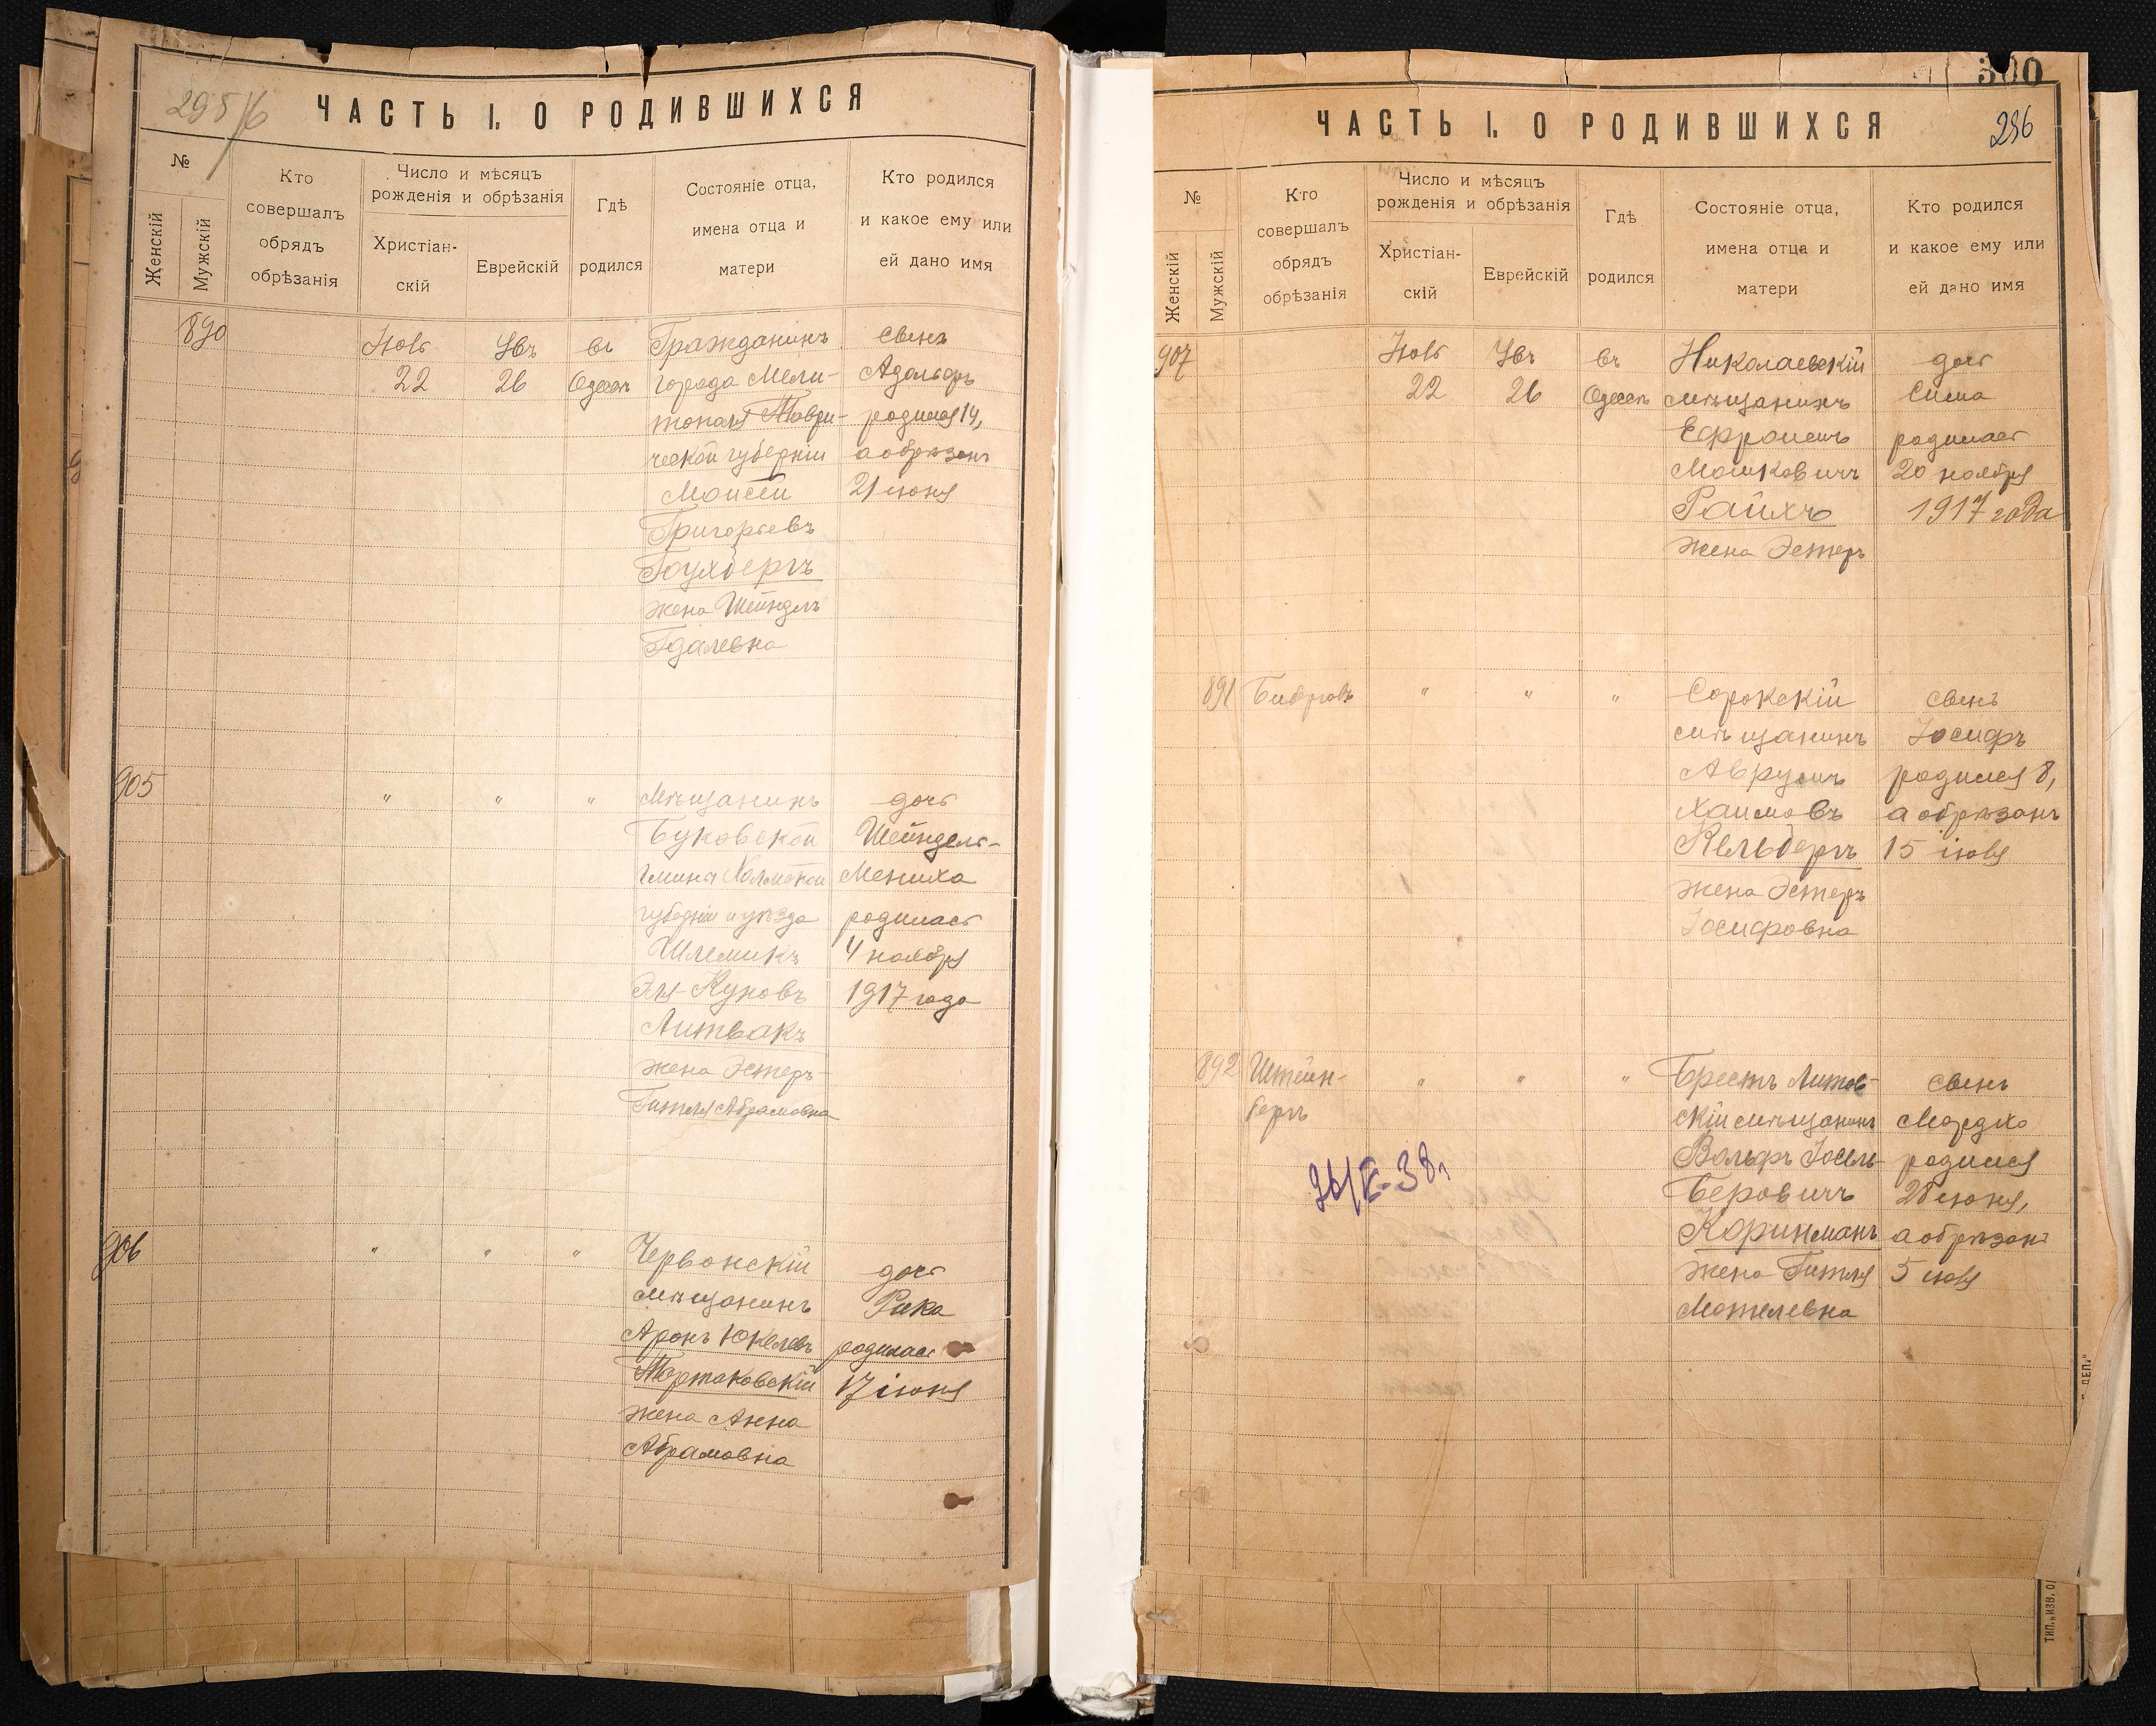 295/6
ЧАСТЬ I. О РОДИВШИХСЯ
№
Женскій
Мужскій
Кто
совершалъ
обрядъ
обрѣзанія
Число и мѣсяцъ
рожденія и обрѣзанія
Христіан-
скій
Еврейскій
Гдѣ
родился
Состояніе отца,
имена отца и
матери
Кто родился
и какое ему или
ей дано имя
890
Іюль
22
Увъ
26
въ
Одессѣ
Гражданинъ
города Мели-
тополя Таври-
ческой губерніи
Моисей
Григорьевъ
Гоухбергъ
жена Шейндль
Гдалевна
сынъ
Адольфъ
родился 14,
а обрѣзанъ
21 іюня
905
" " "
Мѣщанинъ
Буковской
гмины Холмской
губерніи и уѣзда
Шлемикъ
Эля Куновъ
Литвакъ
жена Эстеръ-
Гитля Абрамовна
дочь
Шейндель-
Мениха
родилась
4 ноября
1917 года
906
" " "
Червонскій
мѣщанинъ
Аронъ Юкелевъ
Тартаковскій
жена Анна
Абрамовна
дочь
Рика
родилась
17 іюня
300
296
ЧАСТЬ I. О РОДИВШИХСЯ
№
Женскій
Мужскій
Кто
совершалъ
обрядъ
обрѣзанія
Число и мѣсяцъ
рожденія и обрѣзанія
Христіан-
скій
Еврейскій
Гдѣ
родился
Состояніе отца,
имена отца и
матери
Кто родился
и какое ему или
ей дано имя
907
Іюль
22
Увъ
26
въ
Одессѣ
Николаевскій
мѣщанинъ
Ефроимъ
Мошковичъ
Райхъ
жена Эстеръ
дочь
Сима
родилась
20 ноября
1917 года
891
" " "
Сорокскій
мѣщанинъ
Аврумъ
Хаимовъ
Кельбертъ
жена Эстеръ
Іосифовна
сынъ
Іосифъ
родился 8,
а обрѣзанъ
15 іюля
892
Штейн-
бергъ
" " "
Брестъ Литов-
скій мѣщанинъ
Вольфъ Іосель-
Беровичъ
Коринманъ
жена Гитля
Мотелевна
сынъ
Мордко
родился
28 іюня,
а обрѣзанъ
5 іюля